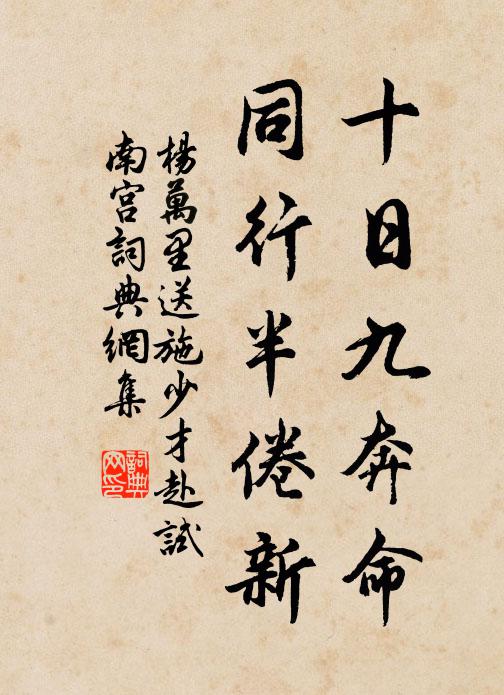 十日九奔命
同行半倦新
楊萬里送施少才赴試
南宮詞典網集
詞典网印